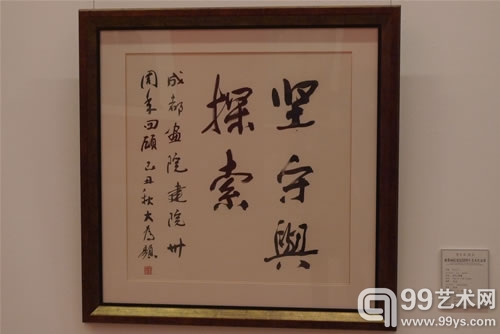 坚守與
探索
成都畫院建院卅
周年回顾 己丑秋大为題
99艺术网
www.99ys.com